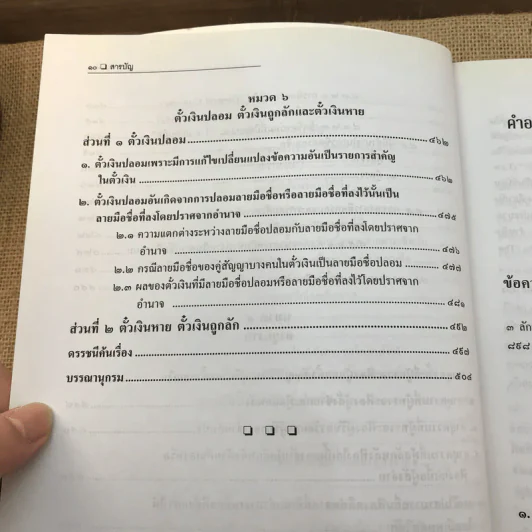 ๑๐ ❑ สารบัญ
หมวด ๖
ตั๋วเงินปลอม ตั๋วเงินถูกลักและตั๋วเงินหาย
ส่วนที่ ๑ ตั๋วเงินปลอม ๔๖๒
๑. ตั๋วเงินปลอมเพราะมีการแก้ไขเปลี่ยนแปลงข้อความอันเป็นรายการสำคัญ
ในตั๋วเงิน ๔๖๒
๒. ตั๋วเงินปลอมอันเกิดจากการปลอมลายมือชื่อหรือลายมือชื่อที่ลงไว้นั้นเป็น
ลายมือชื่อที่ลงโดยปราศจากอำนาจ ๔๗๕
๒.๑ ความแตกต่างระหว่างลายมือชื่อปลอมกับลายมือชื่อที่ลงโดยปราศจาก
อำนาจ ๔๗๖
๒.๒ กรณีลายมือชื่อของคู่สัญญาบางคนในตั๋วเงินเป็นลายมือชื่อปลอม ๔๗๗
๒.๓ ผลของตั๋วเงินที่มีลายมือชื่อปลอมหรือลายมือชื่อที่ลงไว้โดยปราศจาก
อำนาจ ๔๘๑
ส่วนที่ ๒ ตั๋วเงินหาย ตั๋วเงินถูกลัก ๔๙๒
ดรรชนีค้นเรื่อง ๔๙๗
บรรณานุกรม ๕๐๔
❑ ❑ ❑
คำอ
ข้อค
๓ ลัก
๘๙๘
๑.